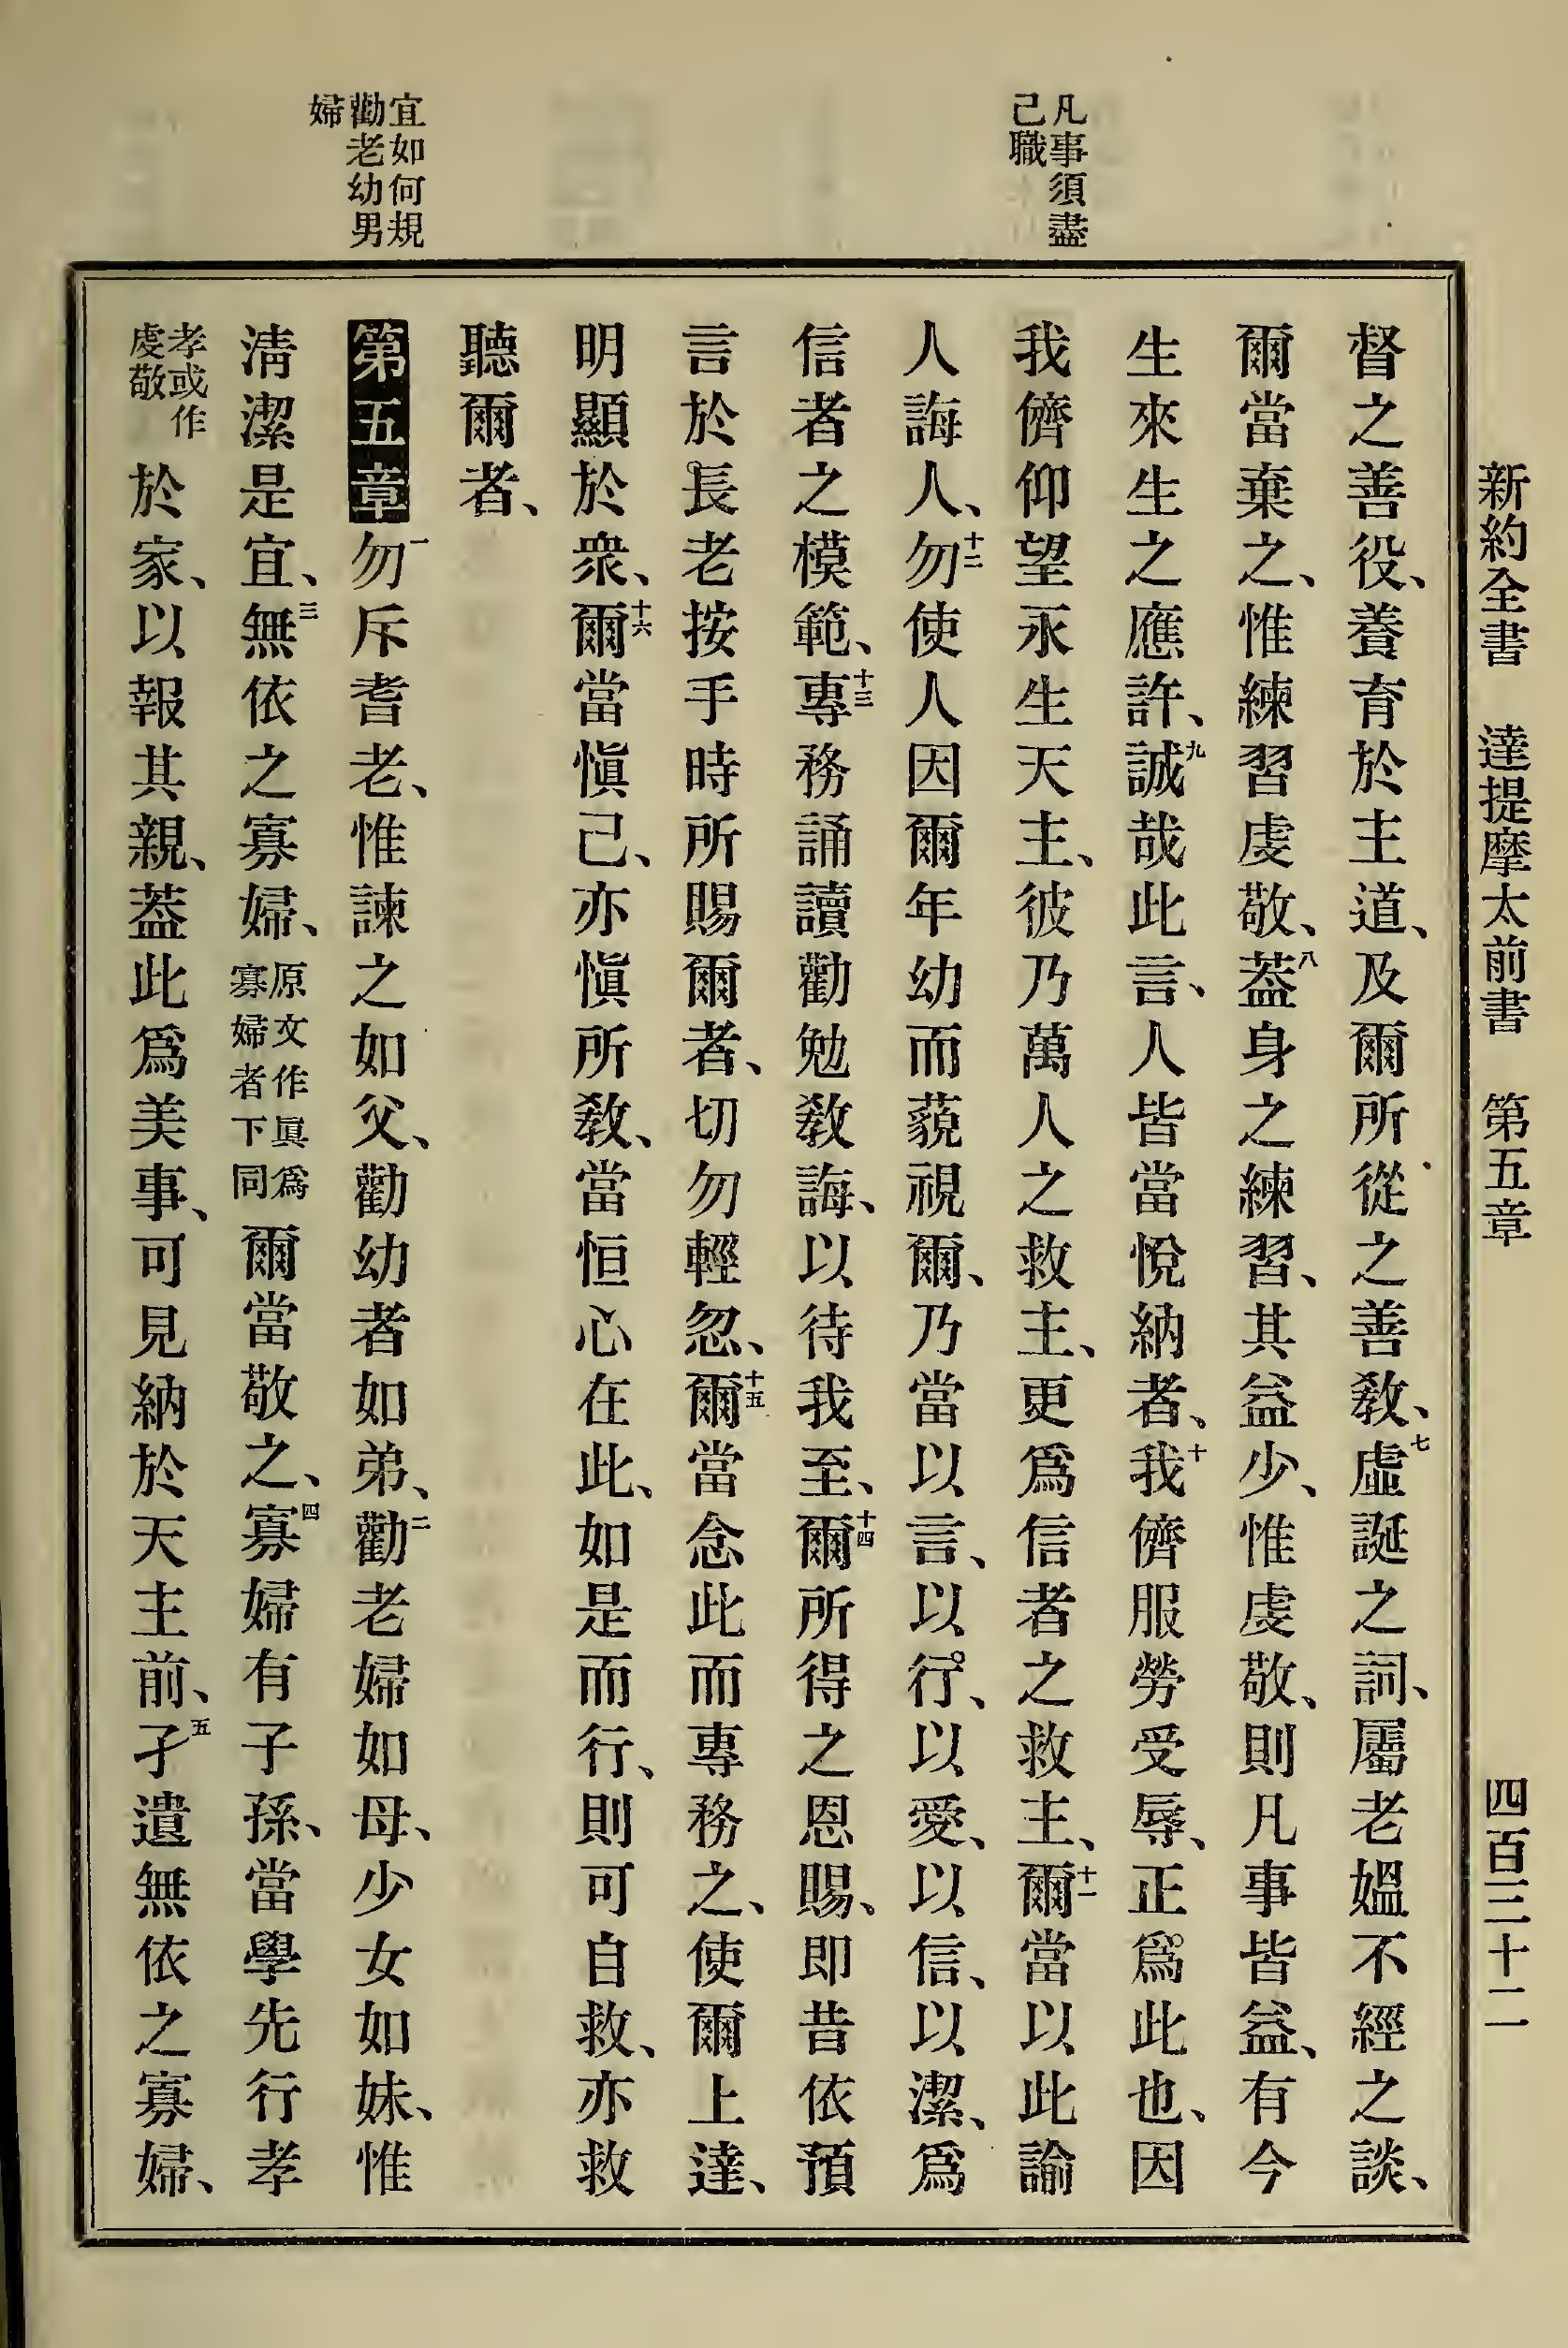 新約全書 達提摩太前書 第五章 四百三十二
凡事須盡
己職
宜如何規
勸老幼男
婦
督之善役、養育於主道、及爾所從之善教、七虛誕之詞、屬老媼不經之談、
爾當棄之、惟練習虔敬、八蓋身之練習、其益少、惟虔敬、則凡事皆益、有今
生來生之應許、九誠哉此言、人皆當悅納者、十我儕服勞受辱、正爲此也、因
我儕仰望永生天主、彼乃萬人之救主、更爲信者之救主、十一爾當以此諭
人誨人、十二勿使人因爾年幼而藐視爾、乃當以言、以行、以愛、以信、以潔、爲
信者之模範、十三專務誦讀勸勉教誨、以待我至、十四爾所得之恩賜、即昔依預
言於長老按手時所賜爾者、切勿輕忽、十五爾當念此而專務之、使爾上達、
明顯於衆、十六爾當愼己、亦愼所教、當恒心在此、如是而行、則可自救、亦救
聽爾者、
第五章 一勿斥耆老、惟諫之如父、勸幼者如弟、二勸老婦如母、少女如妹、惟
淸潔是宜、三無依之寡婦、原文作眞爲寡婦者下同爾當敬之、四寡婦有子孫、當學先行孝
孝或作虔敬於家、以報其親、蓋此爲美事、可見納於天主前、五孑遺無依之寡婦、